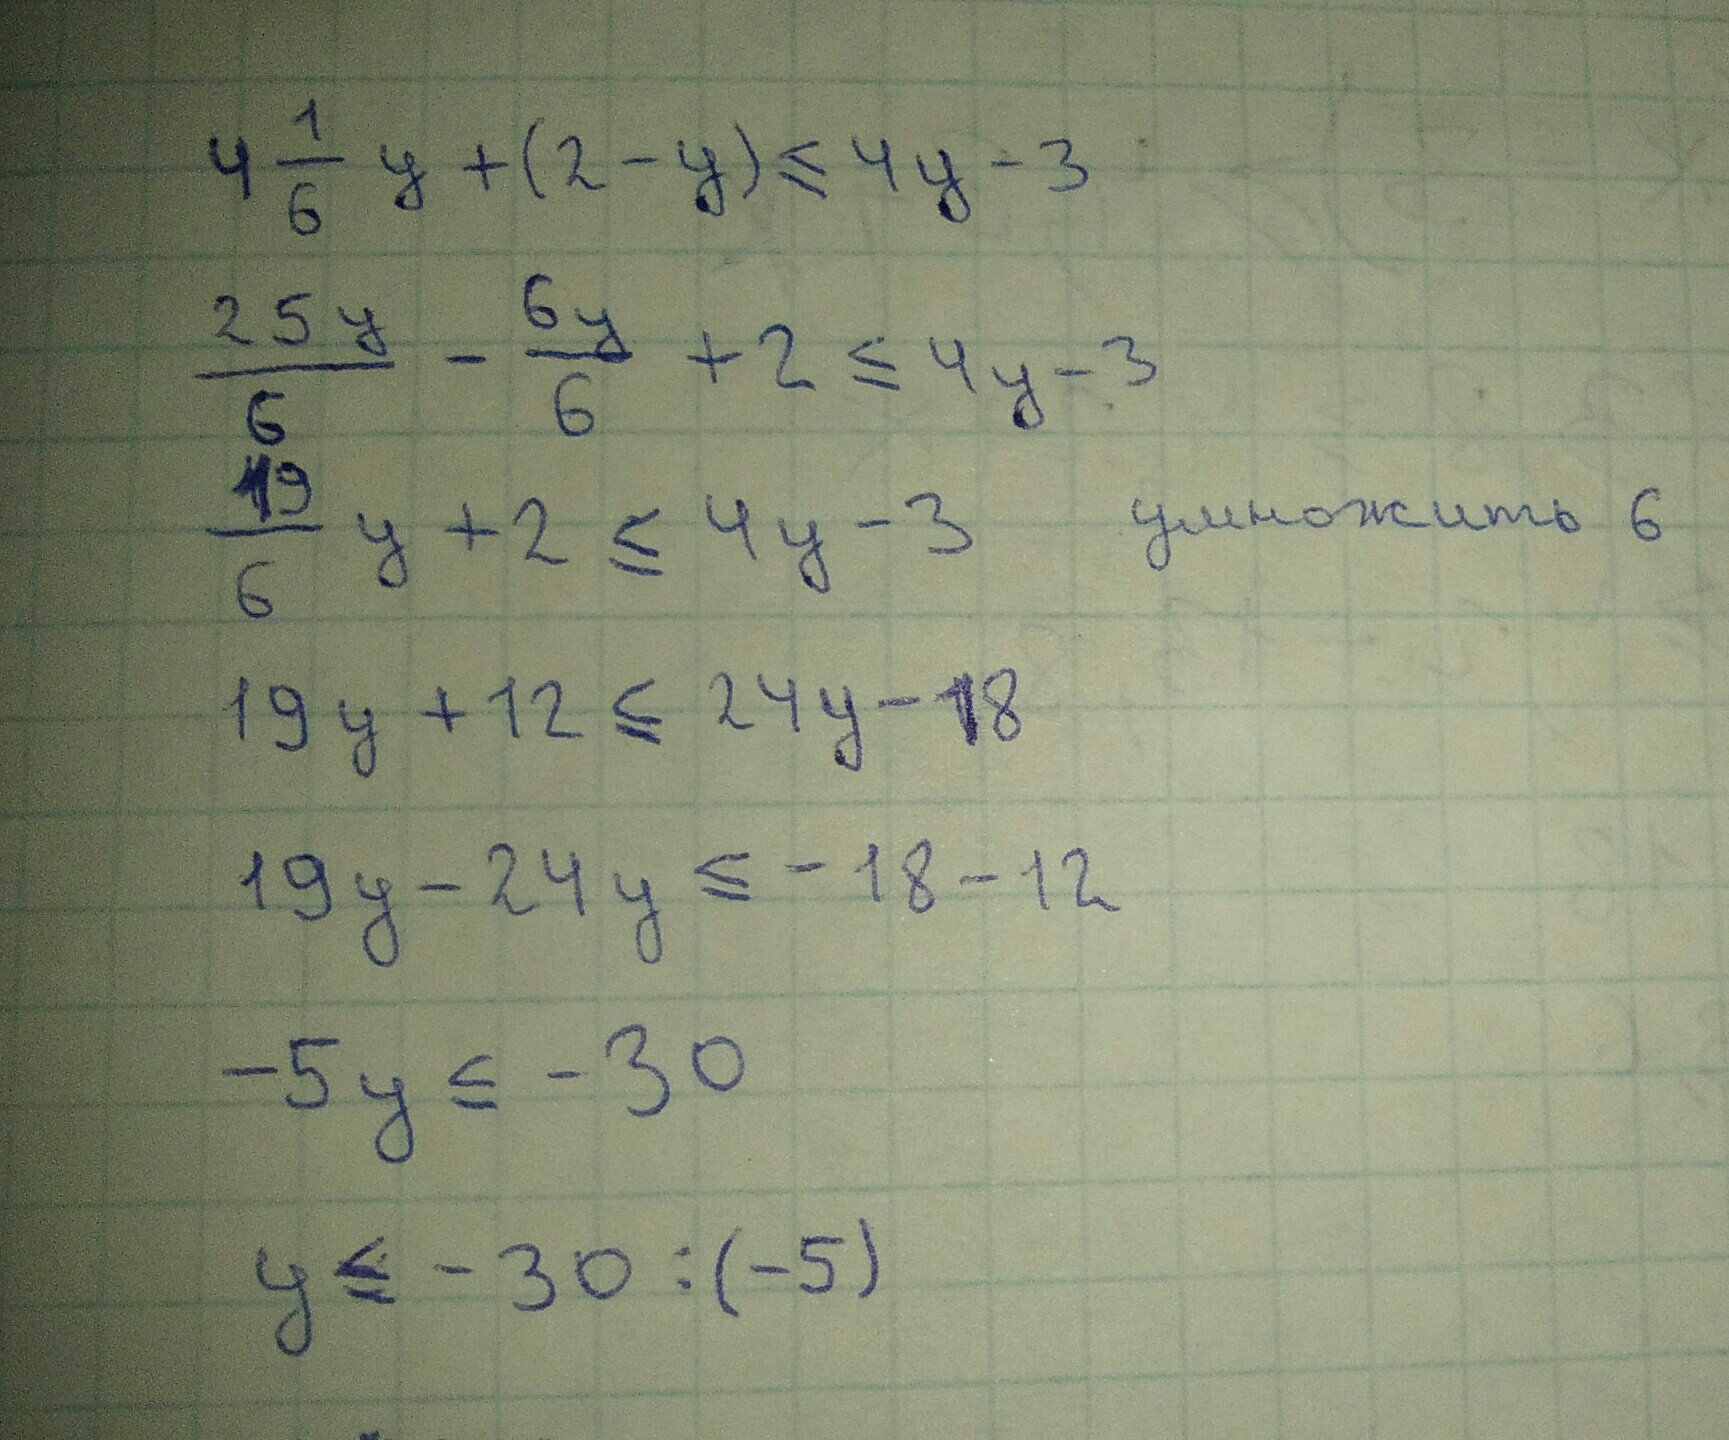 4 1/6 y + (2 - y) ≤ 4y - 3
25y/6 - 6y/6 + 2 ≤ 4y - 3
19/6 y + 2 ≤ 4y - 3 умножить 6
19y + 12 ≤ 24y - 18
19y - 24y ≤ - 18 - 12
-5y ≤ - 30
y ≤ - 30 : (-5)